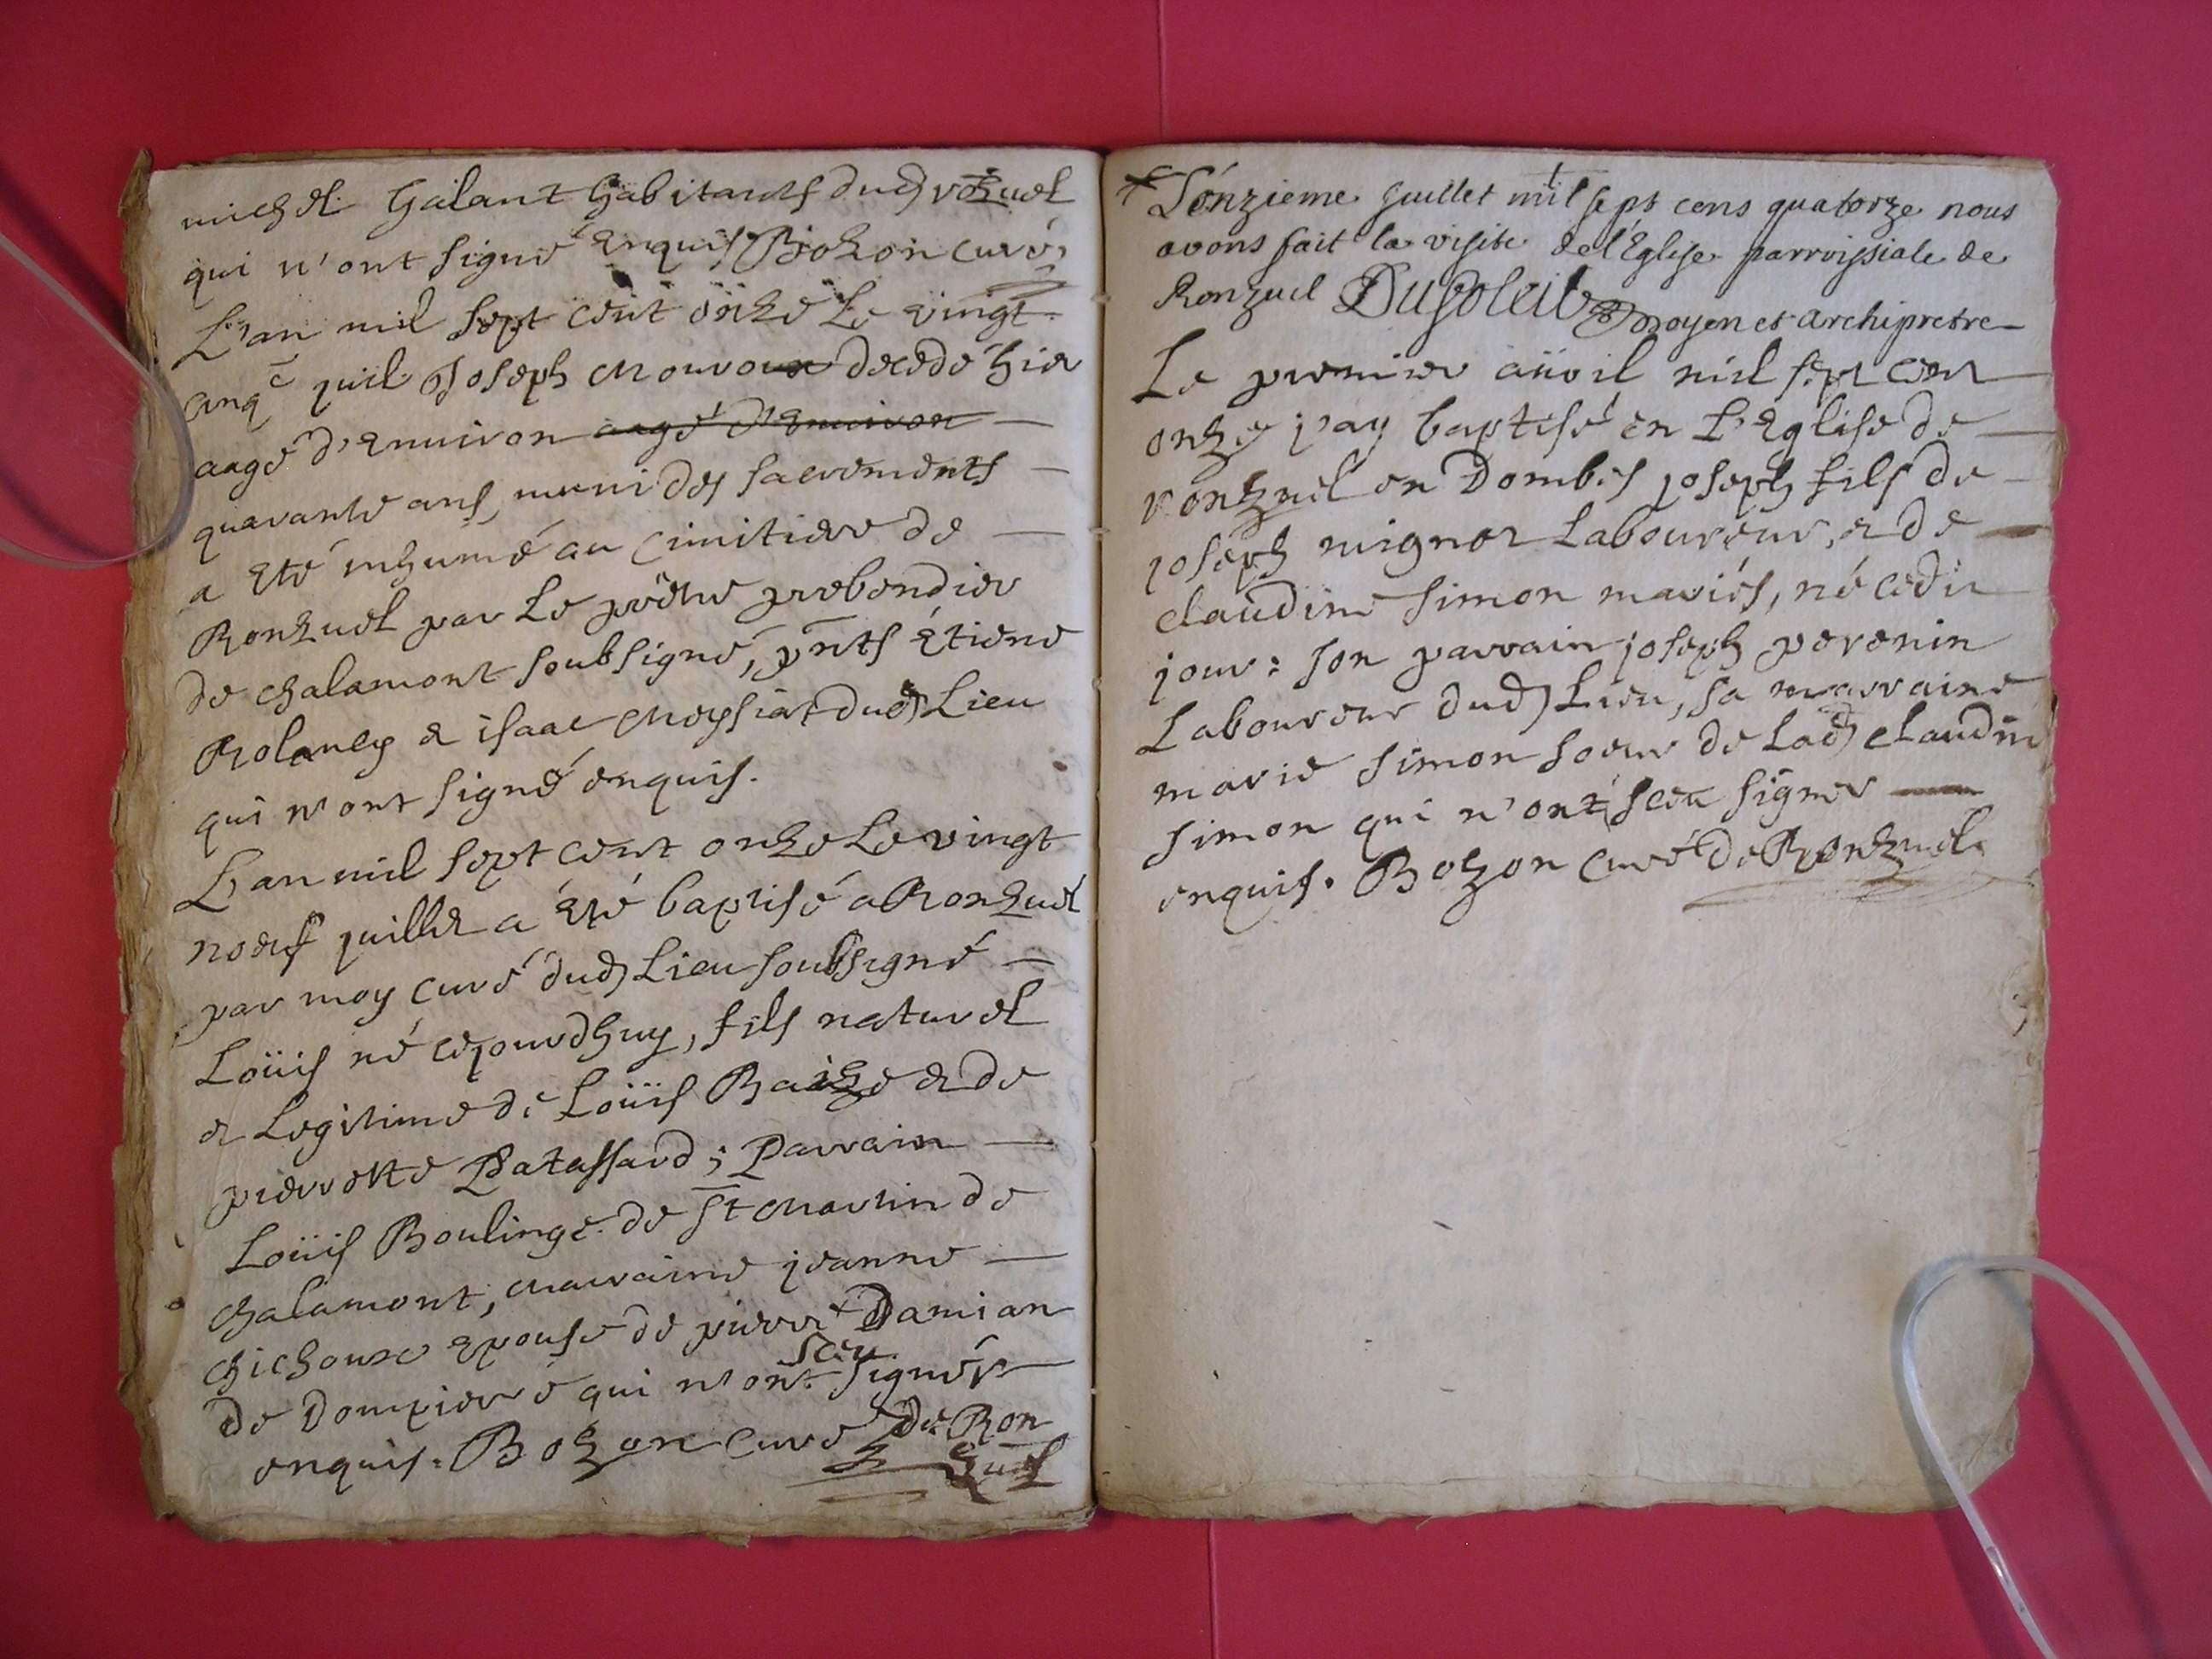 michel Galant habitants dud) rōzuel
qui n'ont signé enquis Bozon curé,
L'an mil sept cent onze Le vingt
cinqe juil Joseph Mouroux decedé hier
aagé d'enuiron aagé d'enuiron
quarante ans, muni des sacrements
a été inhumé au cimitiere de
Ronzuel par Le prêtre prebendier
de chalamont soubsigné, pnts Étiene
Rolancy & isaac Meyssiat dud) Lieu
qui n'ont signé enquis.
L'an mil sept cent onze Le vingt
noeuf juillet a été baptisé a Ronzuel
par moy curé dud) Lieu soubsigné
Loüis né cejourdhuy, fils naturel
& Legitime de Loüis Baize & de
pierrette Patassard ; Parrain
Loüis Boulinge de St Martin de
chalamont, Marraine jeanne
chichoux epouse de pierre Damian
de Dompierre qui n'ont sceu signér
enquis. Bozon curé de Ron
zuel
L'onzieme Juillet mil sept cens quatorze nous
avons fait la visite de l'Eglise parroissiale de
Ronzuel Dusoleil Doyen et archipretre
Le premier auvil mil sept cent
onze j'ay baptisé en L'Eglise de
ronzuel en Dombes joseph fils de
joseph mignot Laboureur, & de
claudine simon mariés, né cedit
jour : son parrain joseph perenin
Laboureur dud) Lieu, sa marraine
marie simon soeur de Lad) claudine
simon qui n'ont sceu signer
enquis. Bozon curé de Ronzuel